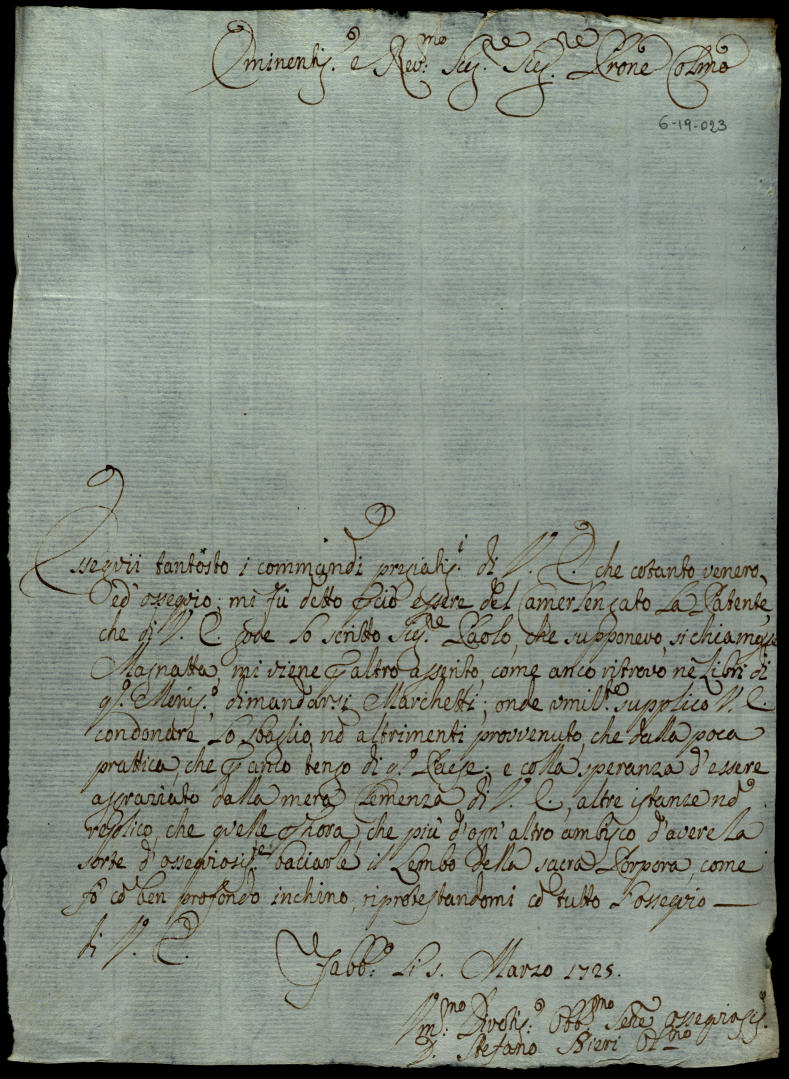 Eminentis.º e Rev.mo Sig.re Sig.re Prone Colmo
6-19-023
Esseguii tantosto i commandi pregiatis.i di V. E. che cotanto venero,
ed' ossequio; mi fù detto essere del Camerlengato La Patente,
che di V. E. gode Lo scritto Sig.re Paolo, che supponevo, si chiamasse
Magnatta, mi viene altro asserito, come anco ritrovo nè Libri di
dimandarsi Marchetti; onde umil.te supplico V. E.
condonare Lo sbaglio, nõ altrimenti provvenuto, che dalla poca
prattica, che anco tengo di q.º Paese; e colla speranza d'essere
aggraziato dalla mera Clemenza di V. E., altre istanze nõ
replico, che quelle hora, che più d'ogn' altro ambisco d'avere La
sorte d'ossequiosis.te baciarle il Lembo della sacra Porpora, come
fò cõ ben profondo inchino, riprotestandomi cõ tutto L'ossequio
di V. E.
Marzo 1725.
Um.mo Divotis.º Obb.mo Sere ossequiosis.º
D. Stefano Bieri